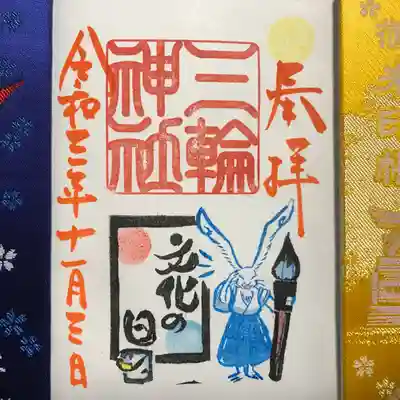 奉拝
三輪
神社
文化の
日
令和三年十一月三日